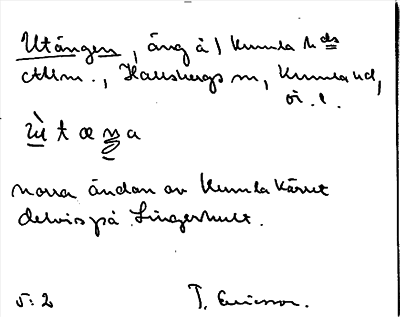 Utängen, äng å Kumla hds
allm., Hallsbergs sn, Kumla hd,
ör. l.
ùtæŋa
norra ändan av Kumla Kärret
delvis på Lingerhult.
5:2 T. Ericsson.